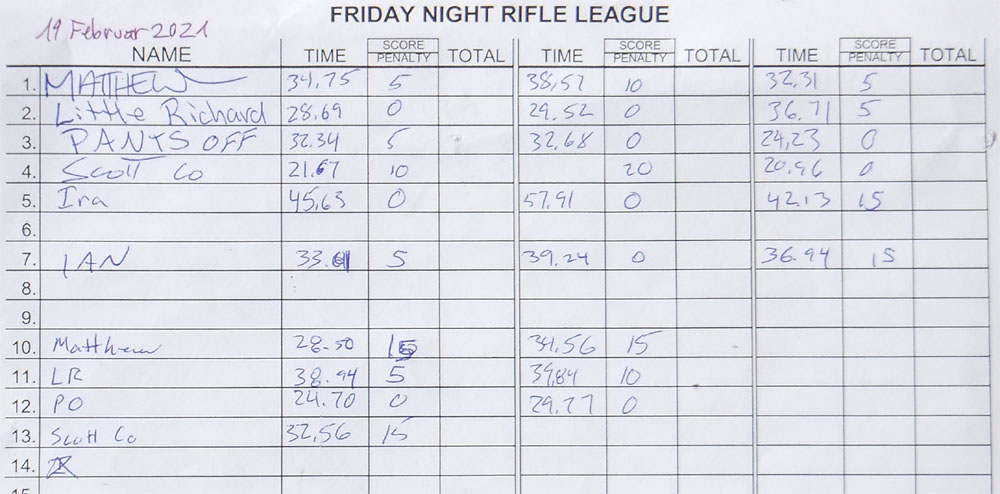 FRIDAY NIGHT RIFLE LEAGUE
19 Februar 2021
NAME TIME SCORE PENALTY TOTAL TIME SCORE PENALTY TOTAL TIME SCORE PENALTY TOTAL
1. MATTHEW 34,75 5 38,57 10 32,31 5
2. Little Richard 28,69 0 29,52 0 36.71 5
3. PANTS OFF 32.34 5 32,68 0 24,23 0
4. Scott Co 21.67 10 20 20.96 0
5. Ira 45,63 0 57.91 0 42.13 15
6.
7. IAN 33.61 5 39.24 0 36.94 15
8.
9.
10. Matthew 28.50 15 34,56 15
11. LR 38.94 5 39,84 10
12. PO 24.70 0 29.77 0
13. Scott Co 32,56 15
14.
15.